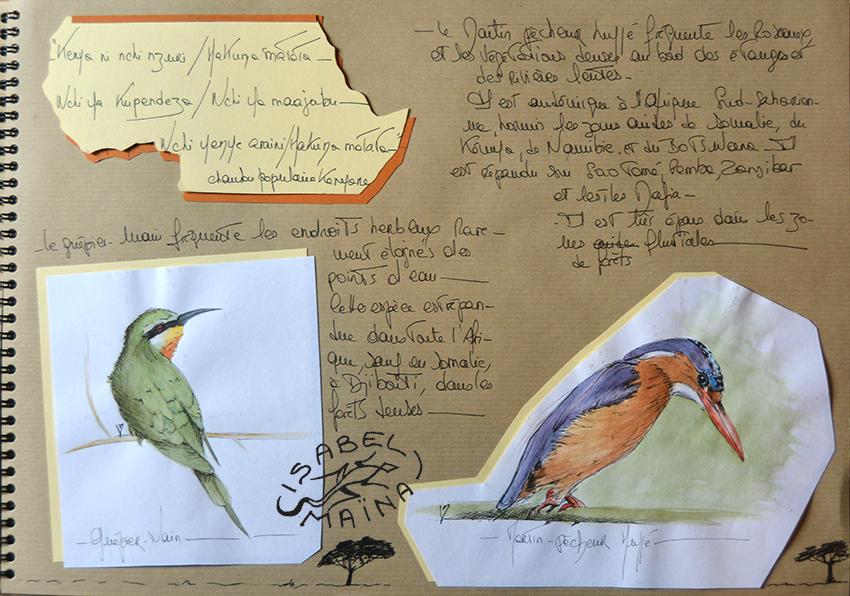 "Kenya ni nchi nzuri / Hakuna matata
Nchi ya Kupendeza / Nchi ya maajabu
Nchi yenye amani / Hakuna matata"
chanson populaire Kenyane
- le Martin pêcheur huppé fréquente les Roseaux,
et les Végétations denses au bord des étangs et
des Rivières lentes -
Il est endémique à l'Afrique Sud-Saharien-
ne, hormis les zones arides de Somalie, du
Kenya, de Namibie et du Botswana - Il
est répandu sur Sao Tomé, Pemba, Zanzibar
et les îles Mafia -
- Il est très épars dans les zo-
nes fluviales
de forêts
le guêpier nain fréquente les endroits herbeux Rare-
ment éloignés des
points d'eau
Cette espèce est répan-
due dans toute l'Afri-
que, sauf en Somalie,
à Djibouti, dans les
forêts denses
ISABEL
MAINA
- Guêpier-Nain -
- Martin-pêcheur Huppé -